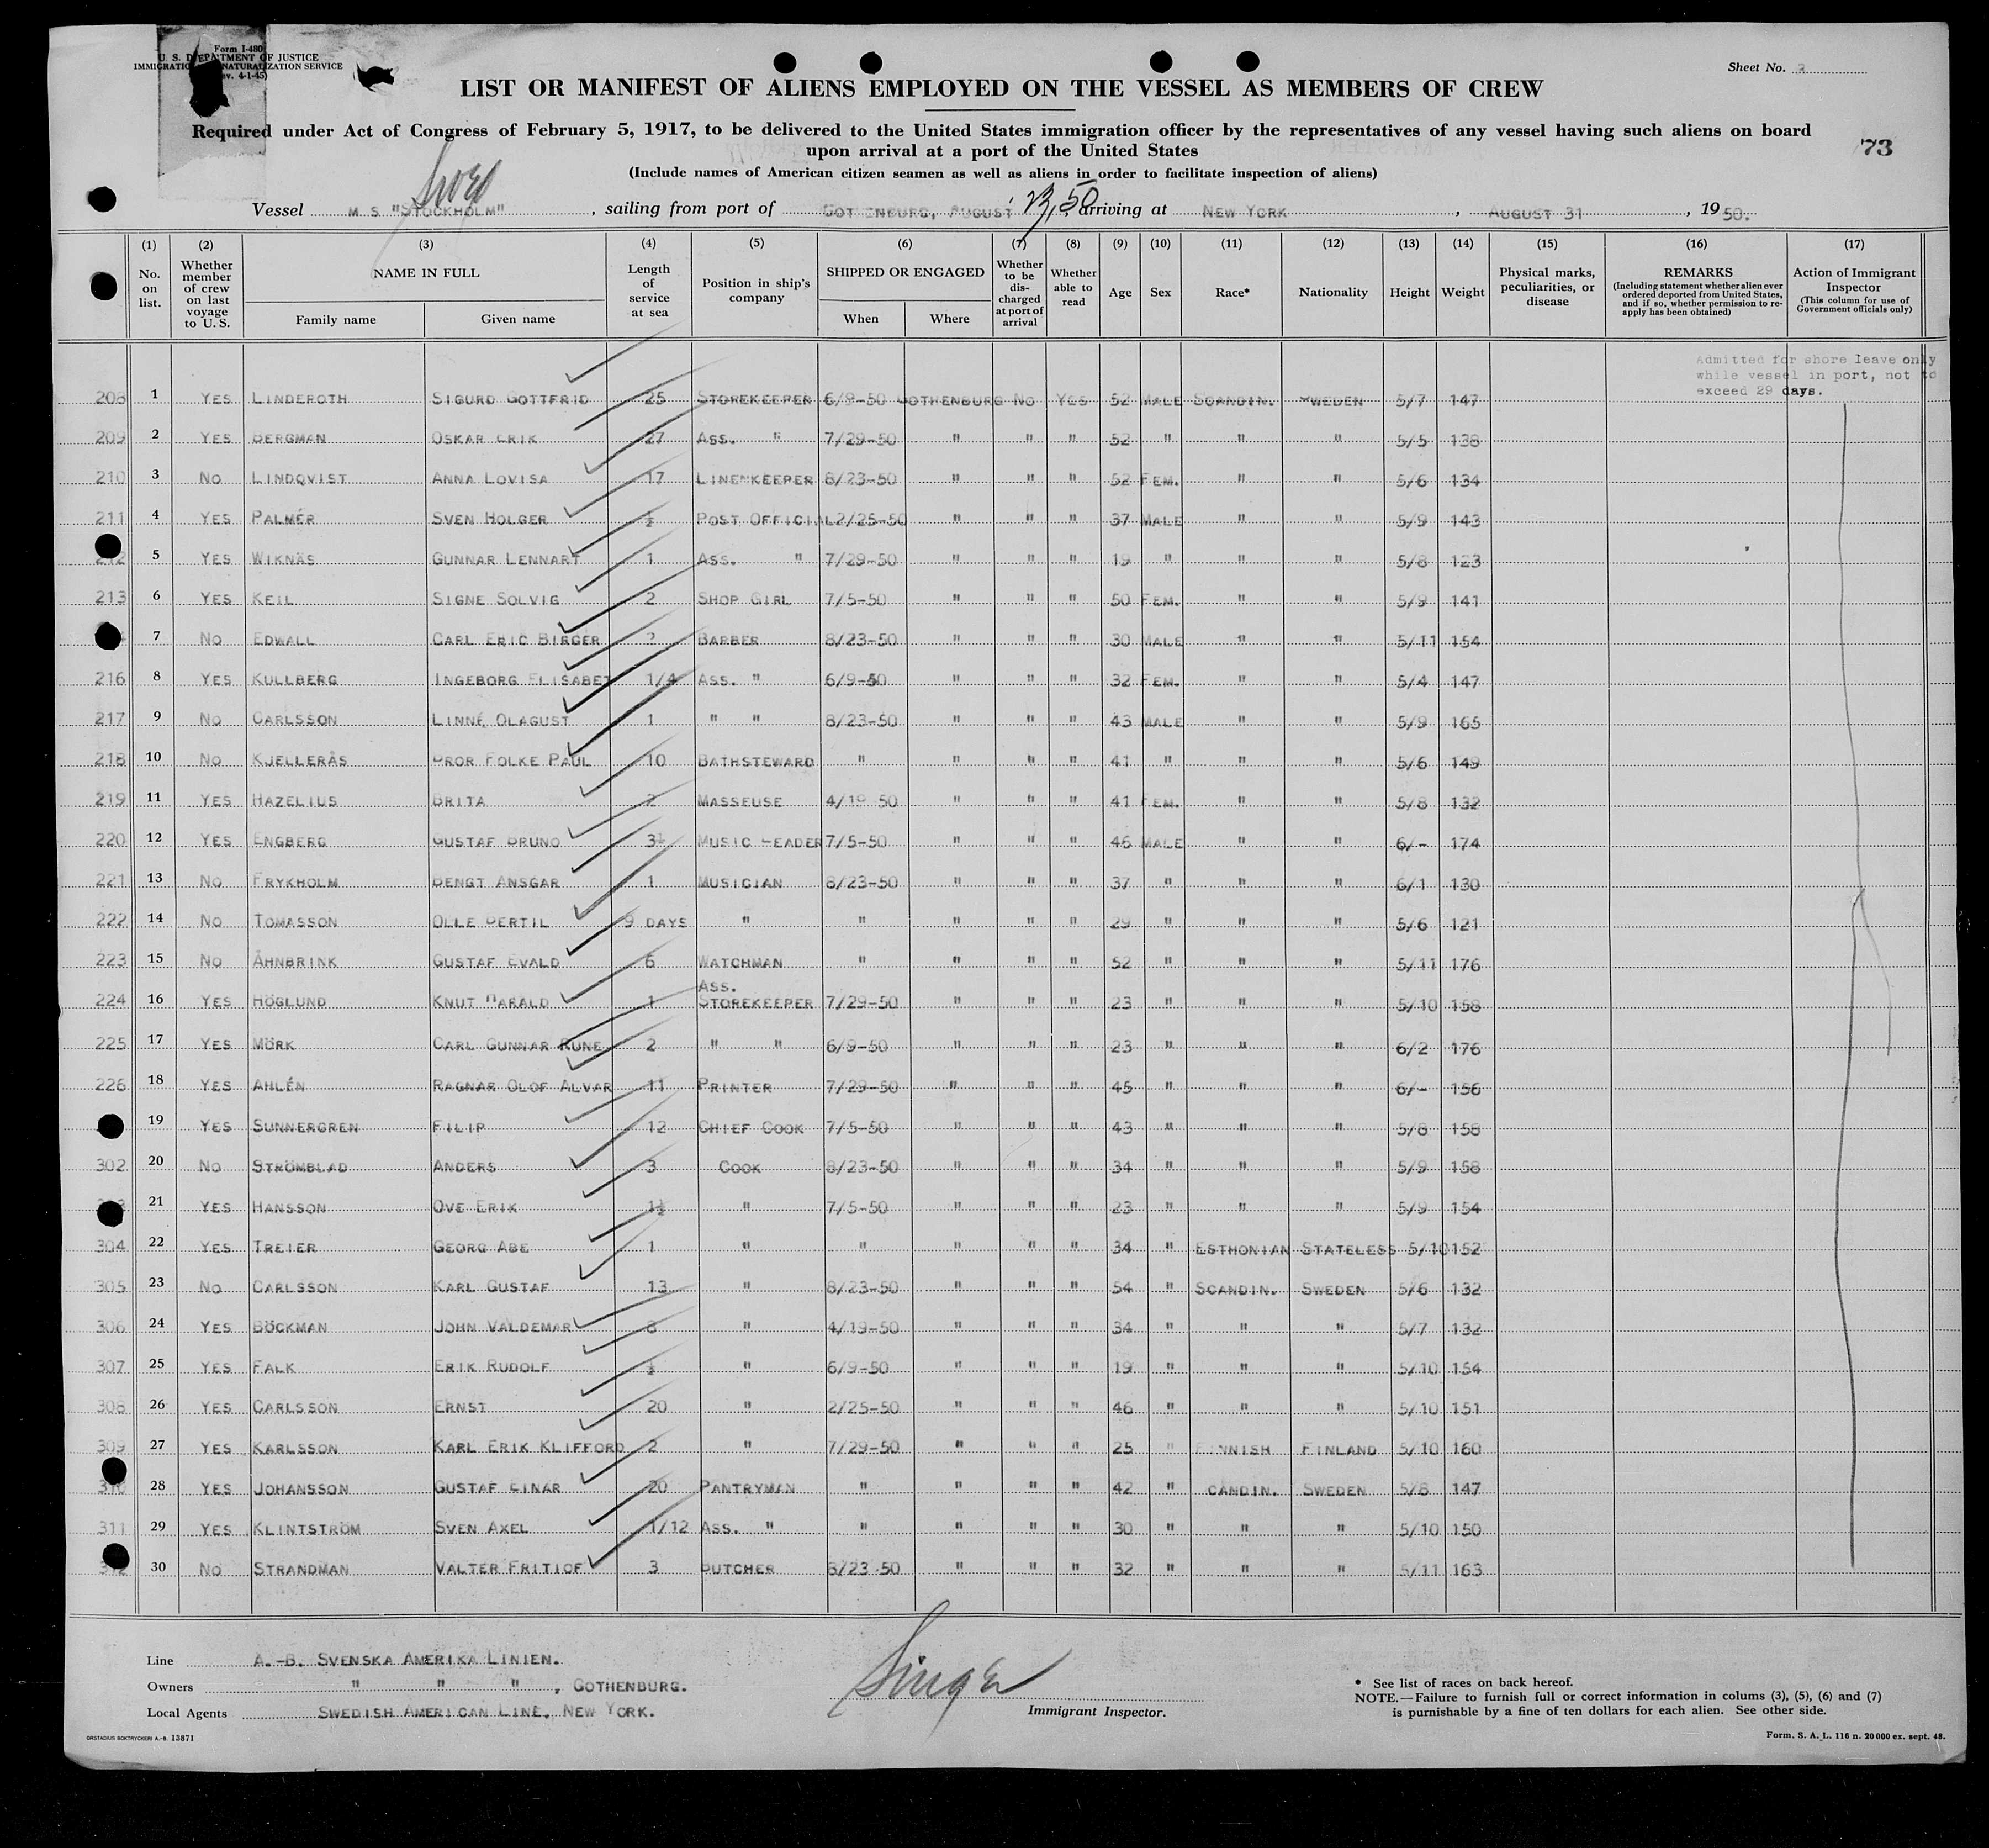 Form I-480
U. S. DEPARTMENT OF JUSTICE
IMMIGRATION NATURALIZATION SERVICE
(Rev. 4-1-45)
Sheet No.
LIST OR MANIFEST OF ALIENS EMPLOYED ON THE VESSEL AS MEMBERS OF CREW
Required under Act of Congress of February 5, 1917, to be delivered to the United States immigration officer by the representatives of any vessel having such aliens on board
upon arrival at a port of the United States
73
(Include names of American citizen seamen as well as aliens in order to facilitate inspection of aliens)
Swed
Vessel M S "STOCKHOLM", sailing from port of GOTHENBURG, AUGUST 23, 50 arriving at NEW YORK, AUGUST 31, 1950.
(1) (2) (3) (4) (5) (6) (7) (8) (9) (10) (11) (12) (13) (14) (15) (16) (17)
No. on list.
Whether member of crew on last voyage to U. S.
NAME IN FULL
Family name Given name
Length of service at sea
Position in ship's company
SHIPPED OR ENGAGED
When Where
Whether to be discharged at port of arrival
Whether able to read
Age Sex Race* Nationality Height Weight
Physical marks, peculiarities, or disease
REMARKS
(Including statement whether alien ever ordered deported from United States, and if so, whether permission to reapply has been obtained)
Action of Immigrant Inspector
(This column for use of Government officials only)
Admitted for shore leave only
while vessel in port, not to
exceed 29 days.
208 1 YES LINDEROTH SIGURD GOTTFRID 25 STOREKEEPER 6/9-50 GOTHENBURG NO YES 52 MALE SCANDIN. SWEDEN 5/7 147
209 2 YES BERGMAN OSKAR ERIK 27 ASS. " 7/29-50 " " " 52 " " " 5/5 138
210 3 NO LINDQVIST ANNA LOVISA 17 LINENKEEPER 8/23-50 " " " 52 FEM. " " 5/6 134
211 4 YES PALMÉR SVEN HOLGER ½ POST OFFICIAL 2/25-50 " " " 37 MALE " " 5/9 143
212 5 YES WIKNÄS GUNNAR LENNART 1 ASS. " 7/29-50 " " " 19 " " " 5/8 123
213 6 YES KEIL SIGNE SOLVIG 2 SHOP GIRL 7/5-50 " " " 50 FEM. " " 5/9 141
7 NO EDWALL CARL ERIC BIRGER 2 BARBER 8/23-50 " " " 30 MALE " " 5/11 154
216 8 YES KULLBERG INGEBORG ELISABET 1/4 ASS. " 6/9-50 " " " 32 FEM. " " 5/4 147
217 9 NO CARLSSON LINNÉ OLAGUST 1 " " 8/23-50 " " " 43 MALE " " 5/9 165
218 10 NO KJELLERÅS BROR FOLKE PAUL 10 BATHSTEWARD " " " " 41 " " " 5/6 149
219 11 YES HAZELIUS BRITA 2 MASSEUSE 4/19 50 " " " 41 FEM. " " 5/8 132
220 12 YES ENGBERG GUSTAF BRUNO 3½ MUSIC LEADER 7/5-50 " " " 46 MALE " " 6/- 174
221 13 NO FRYKHOLM BENGT ANSGAR 1 MUSICIAN 8/23-50 " " " 37 " " " 6/1 130
222 14 NO TOMASSON OLLE BERTIL 9 DAYS " " " " " 29 " " " 5/6 121
223 15 NO ÅHNBRINK GUSTAF EVALD 6 WATCHMAN " " " " 52 " " " 5/11 176
224 16 YES HÖGLUND KNUT HARALD 1 ASS. STOREKEEPER 7/29-50 " " " 23 " " " 5/10 158
225 17 YES MÖRK CARL GUNNAR RUNE 2 " " 6/9-50 " " " 23 " " " 6/2 176
226 18 YES AHLÉN RAGNAR OLOF ALVAR 11 PRINTER 7/29-50 " " " 45 " " " 6/- 156
19 YES SUNNERGREN FILIP 12 CHIEF COOK 7/5-50 " " " 43 " " " 5/8 158
302 20 NO STRÖMBLAD ANDERS 3 COOK 8/23-50 " " " 34 " " " 5/9 158
21 YES HANSSON OVE ERIK 1½ " 7/5-50 " " " 23 " " " 5/9 154
304 22 YES TREIER GEORG ABE 1 " " " " " 34 " ESTHONIAN STATELESS 5/10 152
305 23 NO CARLSSON KARL GUSTAF 13 " 8/23-50 " " " 54 " SCANDIN. SWEDEN 5/6 132
306 24 YES BÖCKMAN JOHN VALDEMAR 8 " 4/19-50 " " " 34 " " " 5/7 132
307 25 YES FALK ERIK RUDOLF ½ " 6/9-50 " " " 19 " " " 5/10 154
308 26 YES CARLSSON ERNST 20 " 2/25-50 " " " 46 " " " 5/10 151
309 27 YES KARLSSON KARL ERIK KLIFFORD 2 " 7/29-50 " " " 25 " FINNISH FINLAND 5/10 160
310 28 YES JOHANSSON GUSTAF EINAR 20 PANTRYMAN " " " " 42 " CANDIN. SWEDEN 5/8 147
311 29 YES KLINTSTRÖM SVEN AXEL 1/12 ASS. " " " " " 30 " " " 5/10 150
312 30 NO STRANDMAN VALTER FRITIOF 3 BUTCHER 8/23-50 " " " 32 " " " 5/11 163
Line A.-B. SVENSKA AMERIKA LINIEN.
Owners " " ", GOTHENBURG.
Local Agents SWEDISH AMERICAN LINE, NEW YORK.
Singer
Immigrant Inspector.
* See list of races on back hereof.
NOTE.—Failure to furnish full or correct information in colums (3), (5), (6) and (7)
is punishable by a fine of ten dollars for each alien. See other side.
ORSTADIUS BOKTRYCKERI A.-B. 13871
Form. S. A. L. 116 n. 20 000 ex. sept. 48.